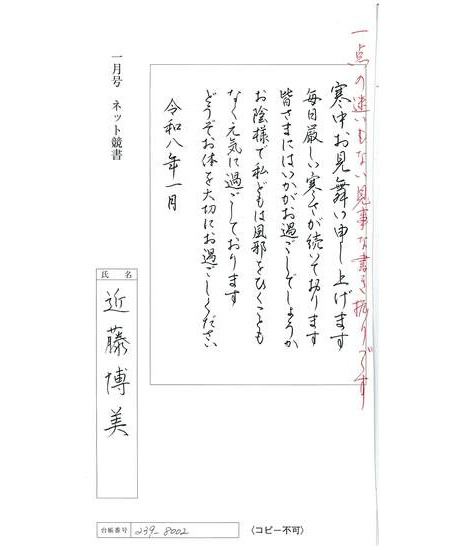 一点の迷いもない見事な書き振りです
寒中お見舞い申し上げます
毎日厳しい寒さが続いております
皆さまにはいかがお過ごしでしょうか
お陰様で私どもは風邪をひくことも
なく元気に過ごしております
どうぞお体を大切にお過ごしください
令和八年一月
一月号 ネット競書
氏名
近藤博美
台帳番号 239-8002
〈コピー不可〉